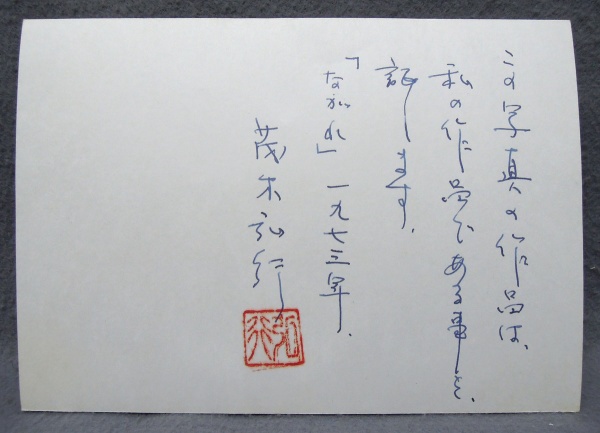 この写真の作品は、
私の作品である事を、
証します。
「ながれ」一九七三年.
茂木弘行
弘行